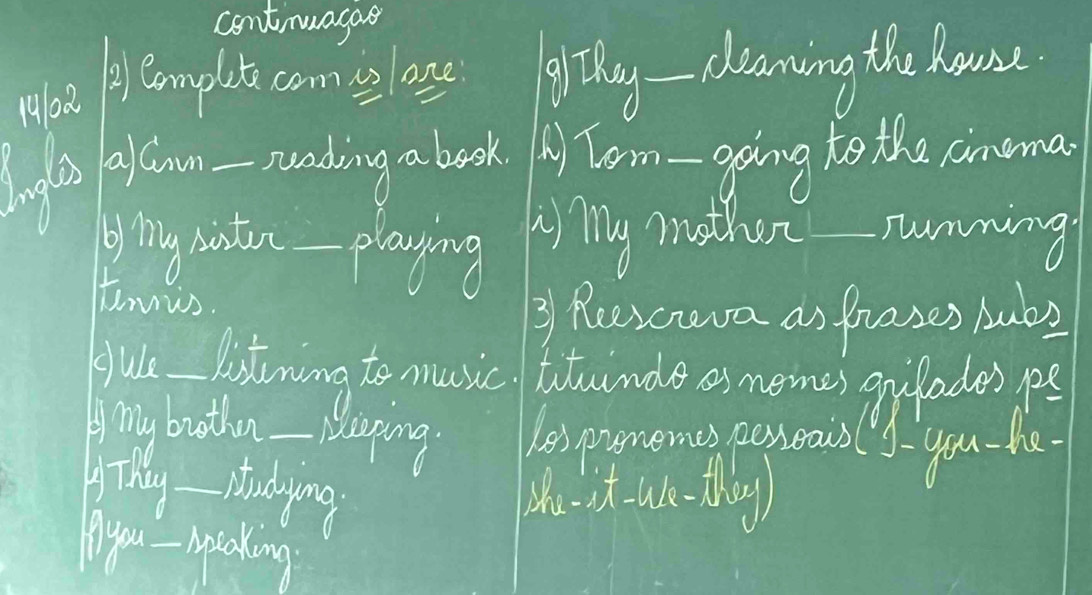 continuação
14/02
Inglês
2) Complete com is/are:
a) Ann __ reading a book.
b) My sister __ playing
tennis.
c) We __ listening to music.
d) My brother __ sleeping.
e) They __ studying.
f) you __ speaking.
g) They __ cleaning the house.
h) Tom __ going to the cinema.
i) My mother __ running.
3) Reescreva as frases subs
tituindo os nomes grifados pe
los pronomes pessoais (I - you - he -
she - it - we - they)